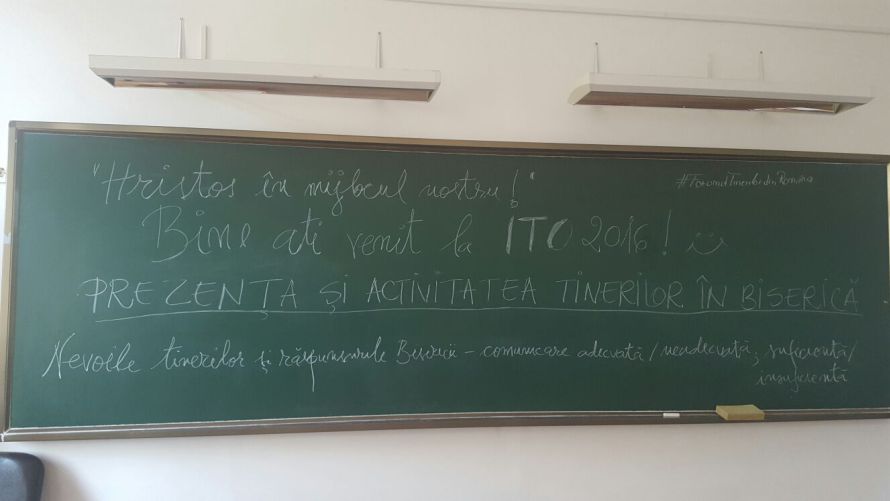 "Hristos în mijlocul nostru!"
#ForumulTinerilordinRomânia
Bine ati venit la ITO 2016! :)
PREZENȚA ȘI ACTIVITATEA TINERILOR ÎN BISERICĂ
Nevoile tinerilor și răspunsurile Bisericii - comunicare adecvată/neadecvată, suficientă/
insuficientă